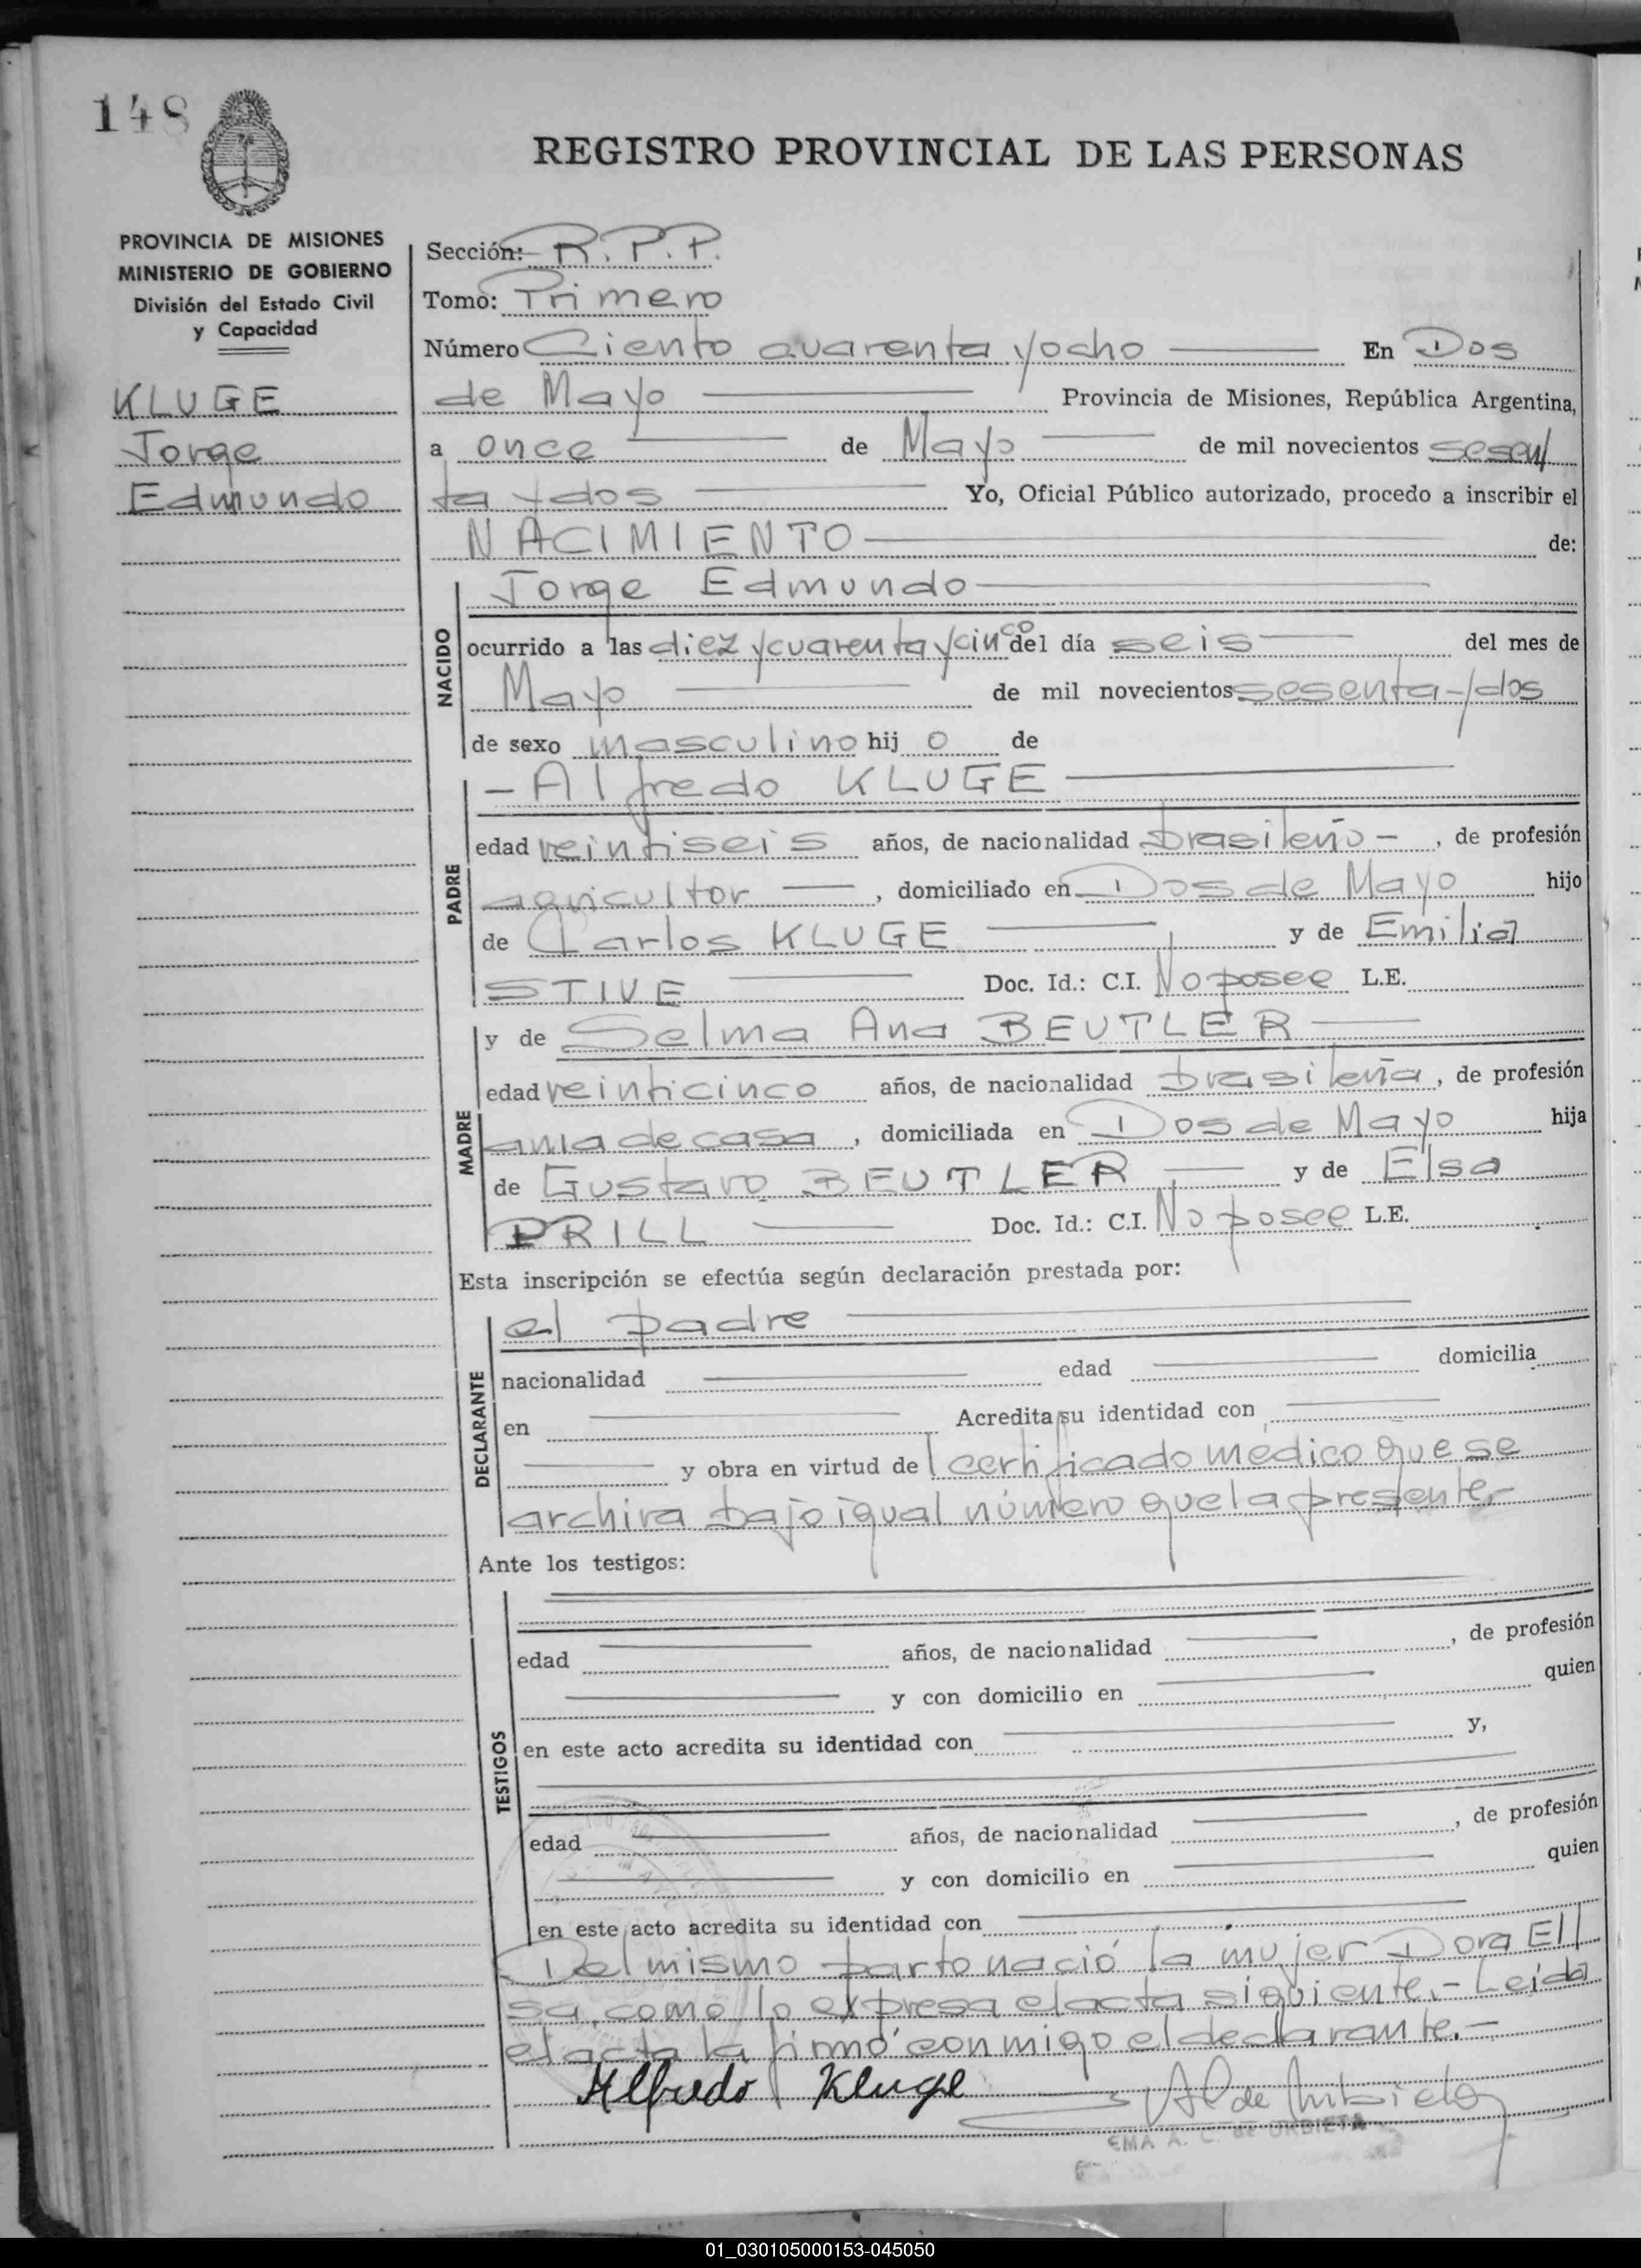 148
REGISTRO PROVINCIAL DE LAS PERSONAS
PROVINCIA DE MISIONES
MINISTERIO DE GOBIERNO
División del Estado Civil
y Capacidad
KLUGE
Jorge
Edmundo
Sección: R.P.P.
Tomo: Primero
Número Ciento cuarenta y ocho En Dos
de Mayo Provincia de Misiones, República Argentina,
a once de Mayo de mil novecientos sesen
ta y dos Yo, Oficial Público autorizado, procedo a inscribir el
NACIMIENTO de:
NACIDO
Jorge Edmundo
ocurrido a las diez y cuarenta y cinco del día seis del mes de
Mayo de mil novecientos sesenta y dos
de sexo masculino hij o de
PADRE
- Alfredo KLUGE
edad veintiseis años, de nacionalidad brasileño - , de profesión
agricultor , domiciliado en Dos de Mayo hijo
de Carlos KLUGE y de Emilia
STIVE Doc. Id.: C.I. No posee L.E.
MADRE
y de Selma Ana BEUTLER
edad veinticinco años, de nacionalidad brasileña , de profesión
ama de casa , domiciliada en Dos de Mayo hija
de Gustavo BEUTLER y de Elsa
PRILL Doc. Id.: C.I. No posee L.E.
Esta inscripción se efectúa según declaración prestada por:
DECLARANTE
el padre
nacionalidad edad domicilia
en Acredita su identidad con
y obra en virtud de l certificado médico que se
archiva bajo igual número que la presente.-
Ante los testigos:
TESTIGOS
edad años, de nacionalidad , de profesión
y con domicilio en quien
en este acto acredita su identidad con y,
edad años, de nacionalidad , de profesión
y con domicilio en quien
en este acto acredita su identidad con
Del mismo parto nació la mujer Dora El
sa, como lo expresa el acta siguiente.- Leida
el acta la firmó conmigo el declarante.-
Alfredo Kluge A C de Urbieta
EMA A. C. de URBIETA
01_030105000153-045050